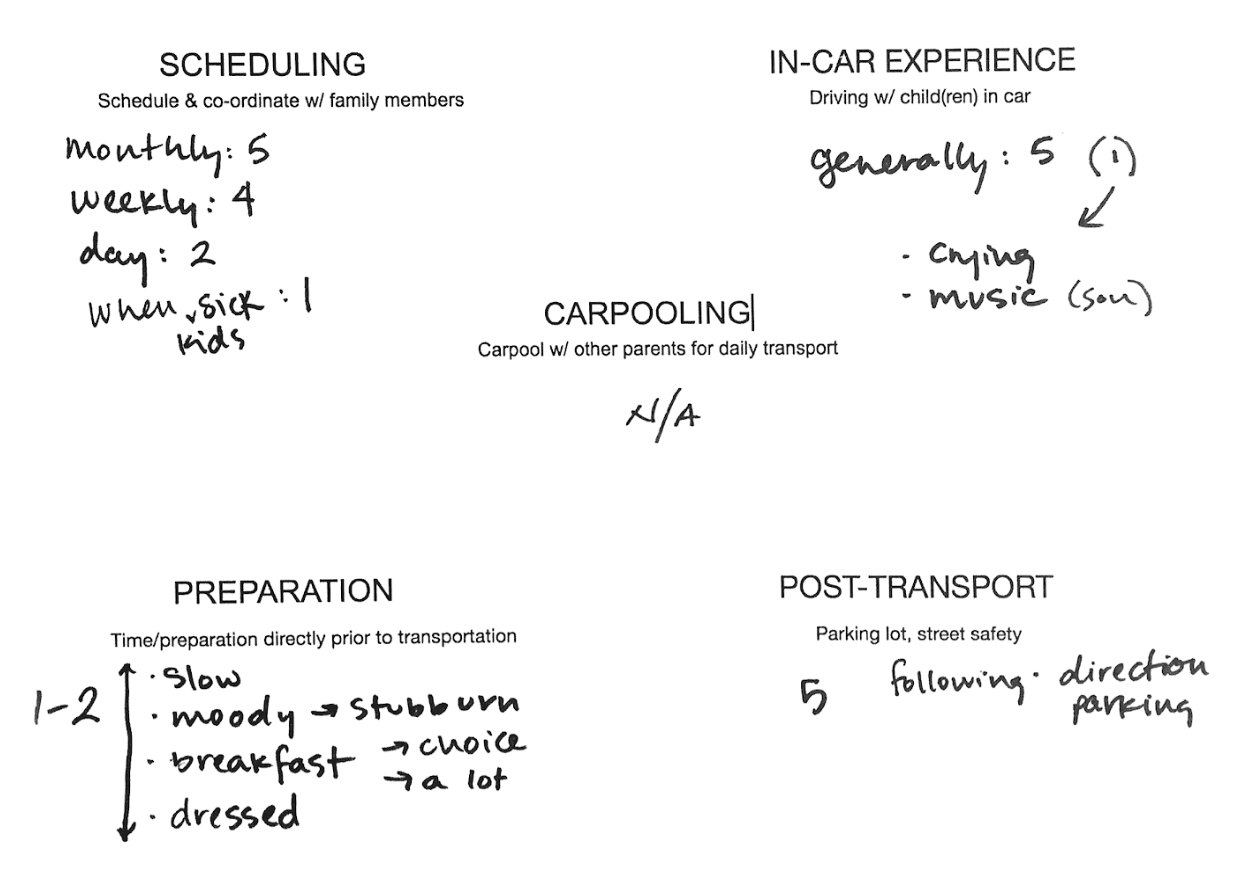 SCHEDULING
Schedule & co-ordinate w/ family members
monthly: 5
weekly: 4
day: 2
when sick : 1
kids
IN-CAR EXPERIENCE
Driving w/ child(ren) in car
generally: 5 (1)
· crying
· music (son)
CARPOOLING
Carpool w/ other parents for daily transport
N/A
PREPARATION
Time/preparation directly prior to transportation
1-2
· slow
· moody → stubburn
· breakfast → choice
→ a lot
· dressed
POST-TRANSPORT
Parking lot, street safety
5 following · direction
parking